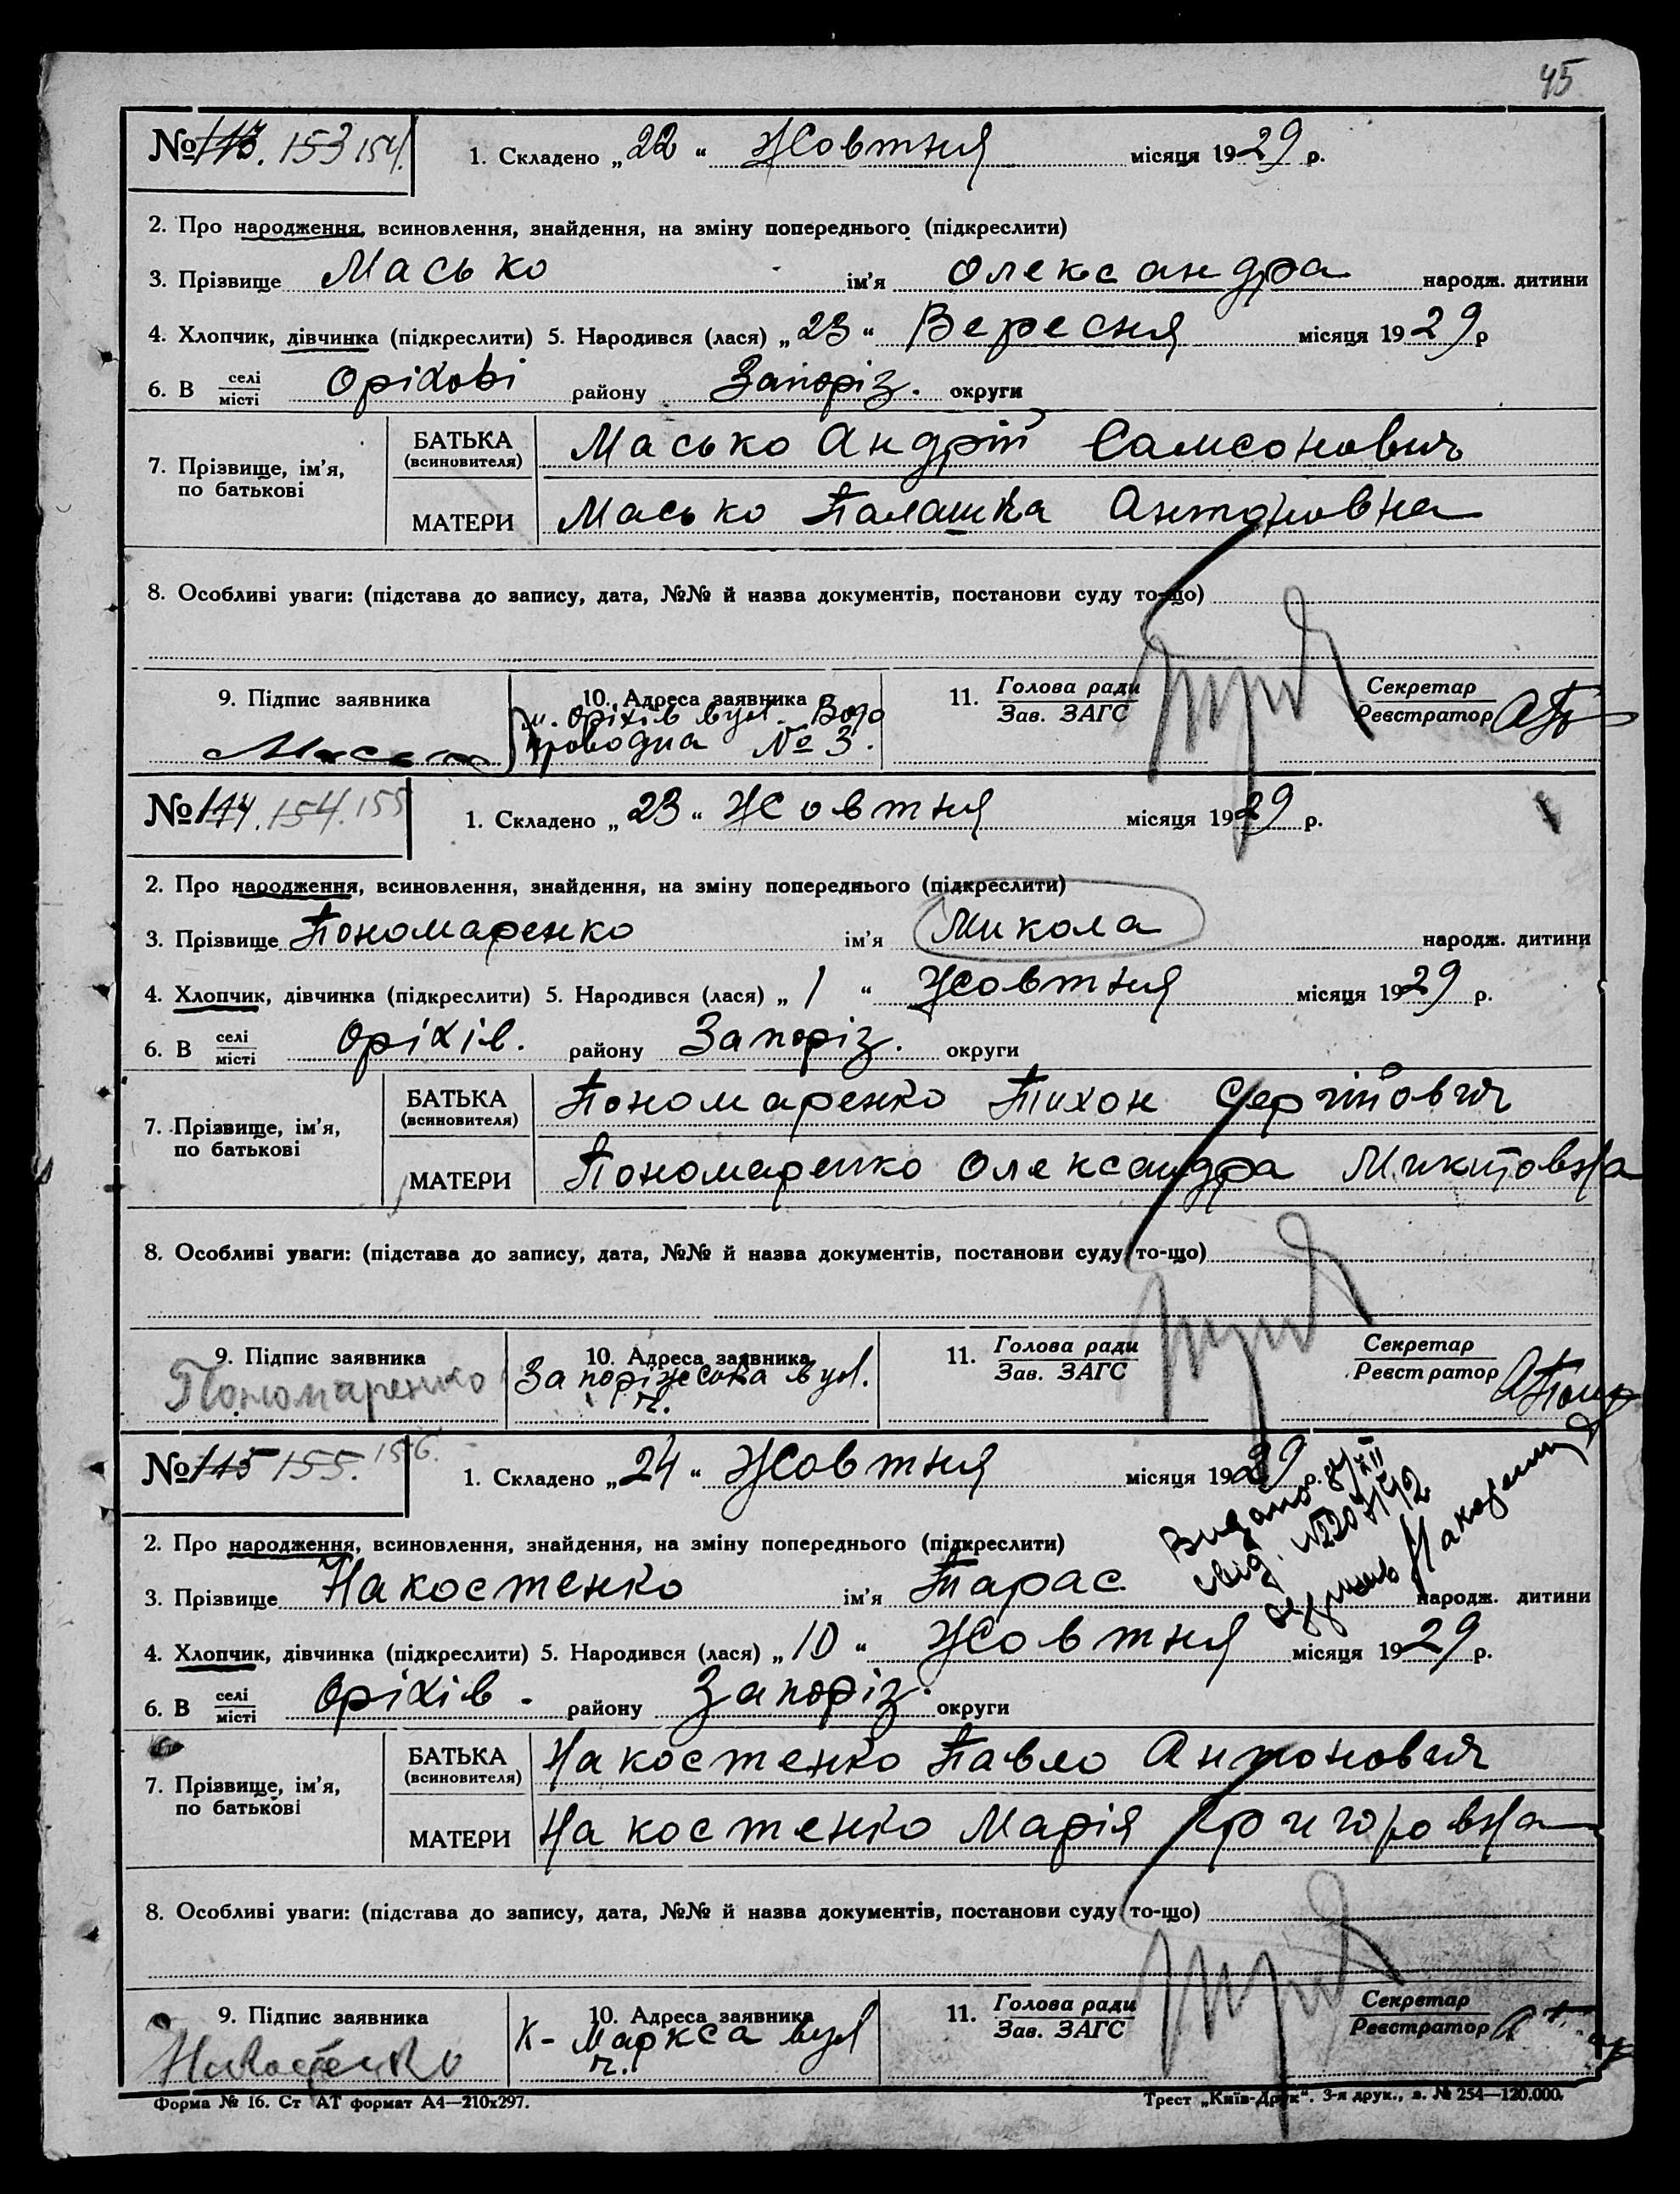 45
№ 113. 153 154. 1. Складено „22“ Жовтня місяця 1929 р.
2. Про народження, всиновлення, знайдення, на зміну попереднього (підкреслити)
3. Прізвище Масько ім’я Олександра народж. дитини
4. Хлопчик, дівчинка (підкреслити) 5. Народився (лася) „23“ Вересня місяця 1929 р
6. В селі місті Оріхові району Запоріз. округи
7. Прізвище, ім’я, по батькові
БАТЬКА (всиновителя) Масько Андрій Самсонович
МАТЕРИ Масько Палашка Антоновна
8. Особливі уваги: (підстава до запису, дата, №№ й назва документів, постанови суду то-що)
9. Підпис заявника 10. Адреса заявника 11. Голова ради Зав. ЗАГС Секретар Реєстратор
м. Оріхів вул. Водо
проводна № 3.
№ 114. 154. 155 1. Складено „23“ Жовтня місяця 1929 р.
2. Про народження, всиновлення, знайдення, на зміну попереднього (підкреслити)
3. Прізвище Пономаренко ім’я Микола народж. дитини
4. Хлопчик, дівчинка (підкреслити) 5. Народився (лася) „1“ Жовтня місяця 1929 р.
6. В селі місті Оріхів. району Запоріз. округи
7. Прізвище, ім’я, по батькові
БАТЬКА (всиновителя) Пономаренко Тихон Сергійович
МАТЕРИ Пономаренко Олександра Микитовна
8. Особливі уваги: (підстава до запису, дата, №№ й назва документів, постанови суду то-що)
9. Підпис заявника 10. Адреса заявника 11. Голова ради Зав. ЗАГС Секретар Реєстратор
Пономаренко Запоріжська вул.
№ 115 155. 156. 1. Складено „24“ Жовтня місяця 1929 р.
Видано
свід. №
2. Про народження, всиновлення, знайдення, на зміну попереднього (підкреслити)
3. Прізвище Накостенко ім’я Тарас народж. дитини
4. Хлопчик, дівчинка (підкреслити) 5. Народився (лася) „10“ Жовтня місяця 1929 р.
6. В селі місті Оріхів. району Запоріз. округи
7. Прізвище, ім’я, по батькові
БАТЬКА (всиновителя) Накостенко Павло Антонович
МАТЕРИ Накостенко Марія Григоровна
8. Особливі уваги: (підстава до запису, дата, №№ й назва документів, постанови суду то-що)
9. Підпис заявника 10. Адреса заявника 11. Голова ради Зав. ЗАГС Секретар Реєстратор
К-Маркса вул
Форма № 16. Ст АТ формат А4—210х297. Трест „Київ-Друк“. 3-я друк., з. № 254—120.000.